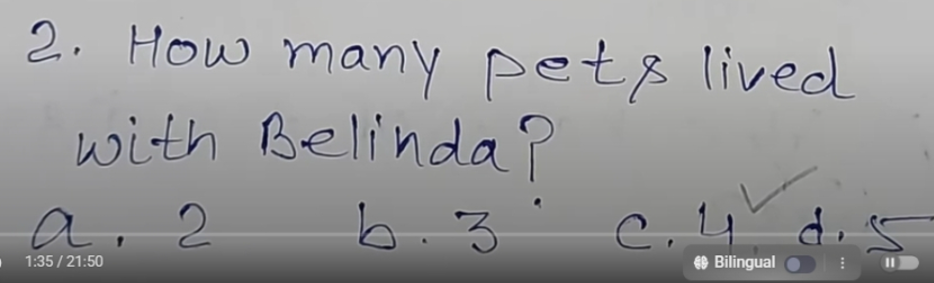 2. How many pets lived
with Belinda?
a. 2 b. 3 c. 4 d. 5
1:35 / 21:50 Bilingual